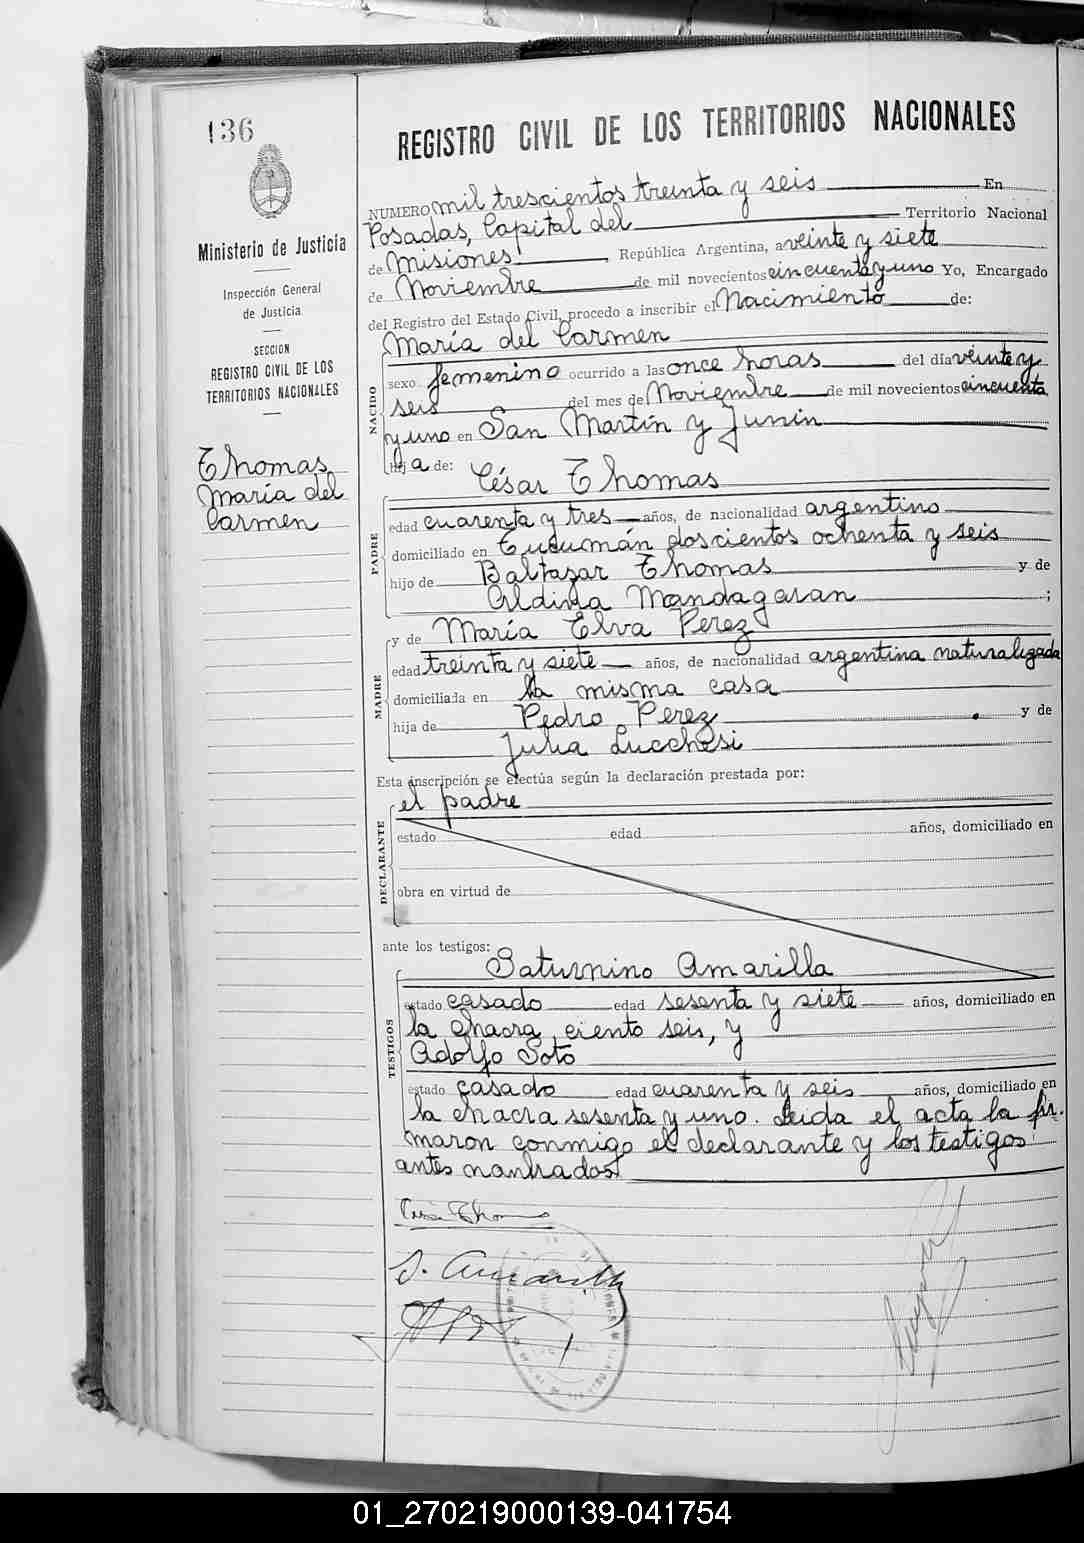 136
REGISTRO CIVIL DE LOS TERRITORIOS NACIONALES
Ministerio de Justicia
Inspección General
de Justicia
SECCION
REGISTRO CIVIL DE LOS
TERRITORIOS NACIONALES
Thomas
María del
Carmen
NUMERO mil trescientos treinta y seis En
Posadas, Capital del Territorio Nacional
de Misiones República Argentina, a veinte y siete
de Noviembre de mil novecientos cincuenta y uno Yo, Encargado
del Registro del Estado Civil, procedo a inscribir el Nacimiento de:
María del Carmen
NACIDO
sexo femenino ocurrido a las once horas del día veinte y
seis del mes de Noviembre de mil novecientos cincuenta
y uno en San Martín y Junín
hija de: César Thomas
PADRE
edad cuarenta y tres años, de nacionalidad argentino
domiciliado en Tucumán doscientos ochenta y seis
hijo de Baltazar Thomas y de
Aldina Mandagaran ;
y de María Elva Perez
MADRE
edad treinta y siete años, de nacionalidad argentina naturalizada
domiciliada en la misma casa
hija de Pedro Perez y de
Julia Lucchesi
Esta inscripción se efectúa según la declaración prestada por:
el padre
DECLARANTE
estado edad años, domiciliado en
obra en virtud de
ante los testigos:
Saturnino Amarilla
TESTIGOS
estado casado edad sesenta y siete años, domiciliado en
la chacra ciento seis, y
Adolfo Soto
estado casado edad cuarenta y seis años, domiciliado en
la chacra sesenta y uno. Leida el acta la fir-
maron conmigo el declarante y los testigos
antes nombrados
César Thomas
S. Amarilla
01_270219000139-041754